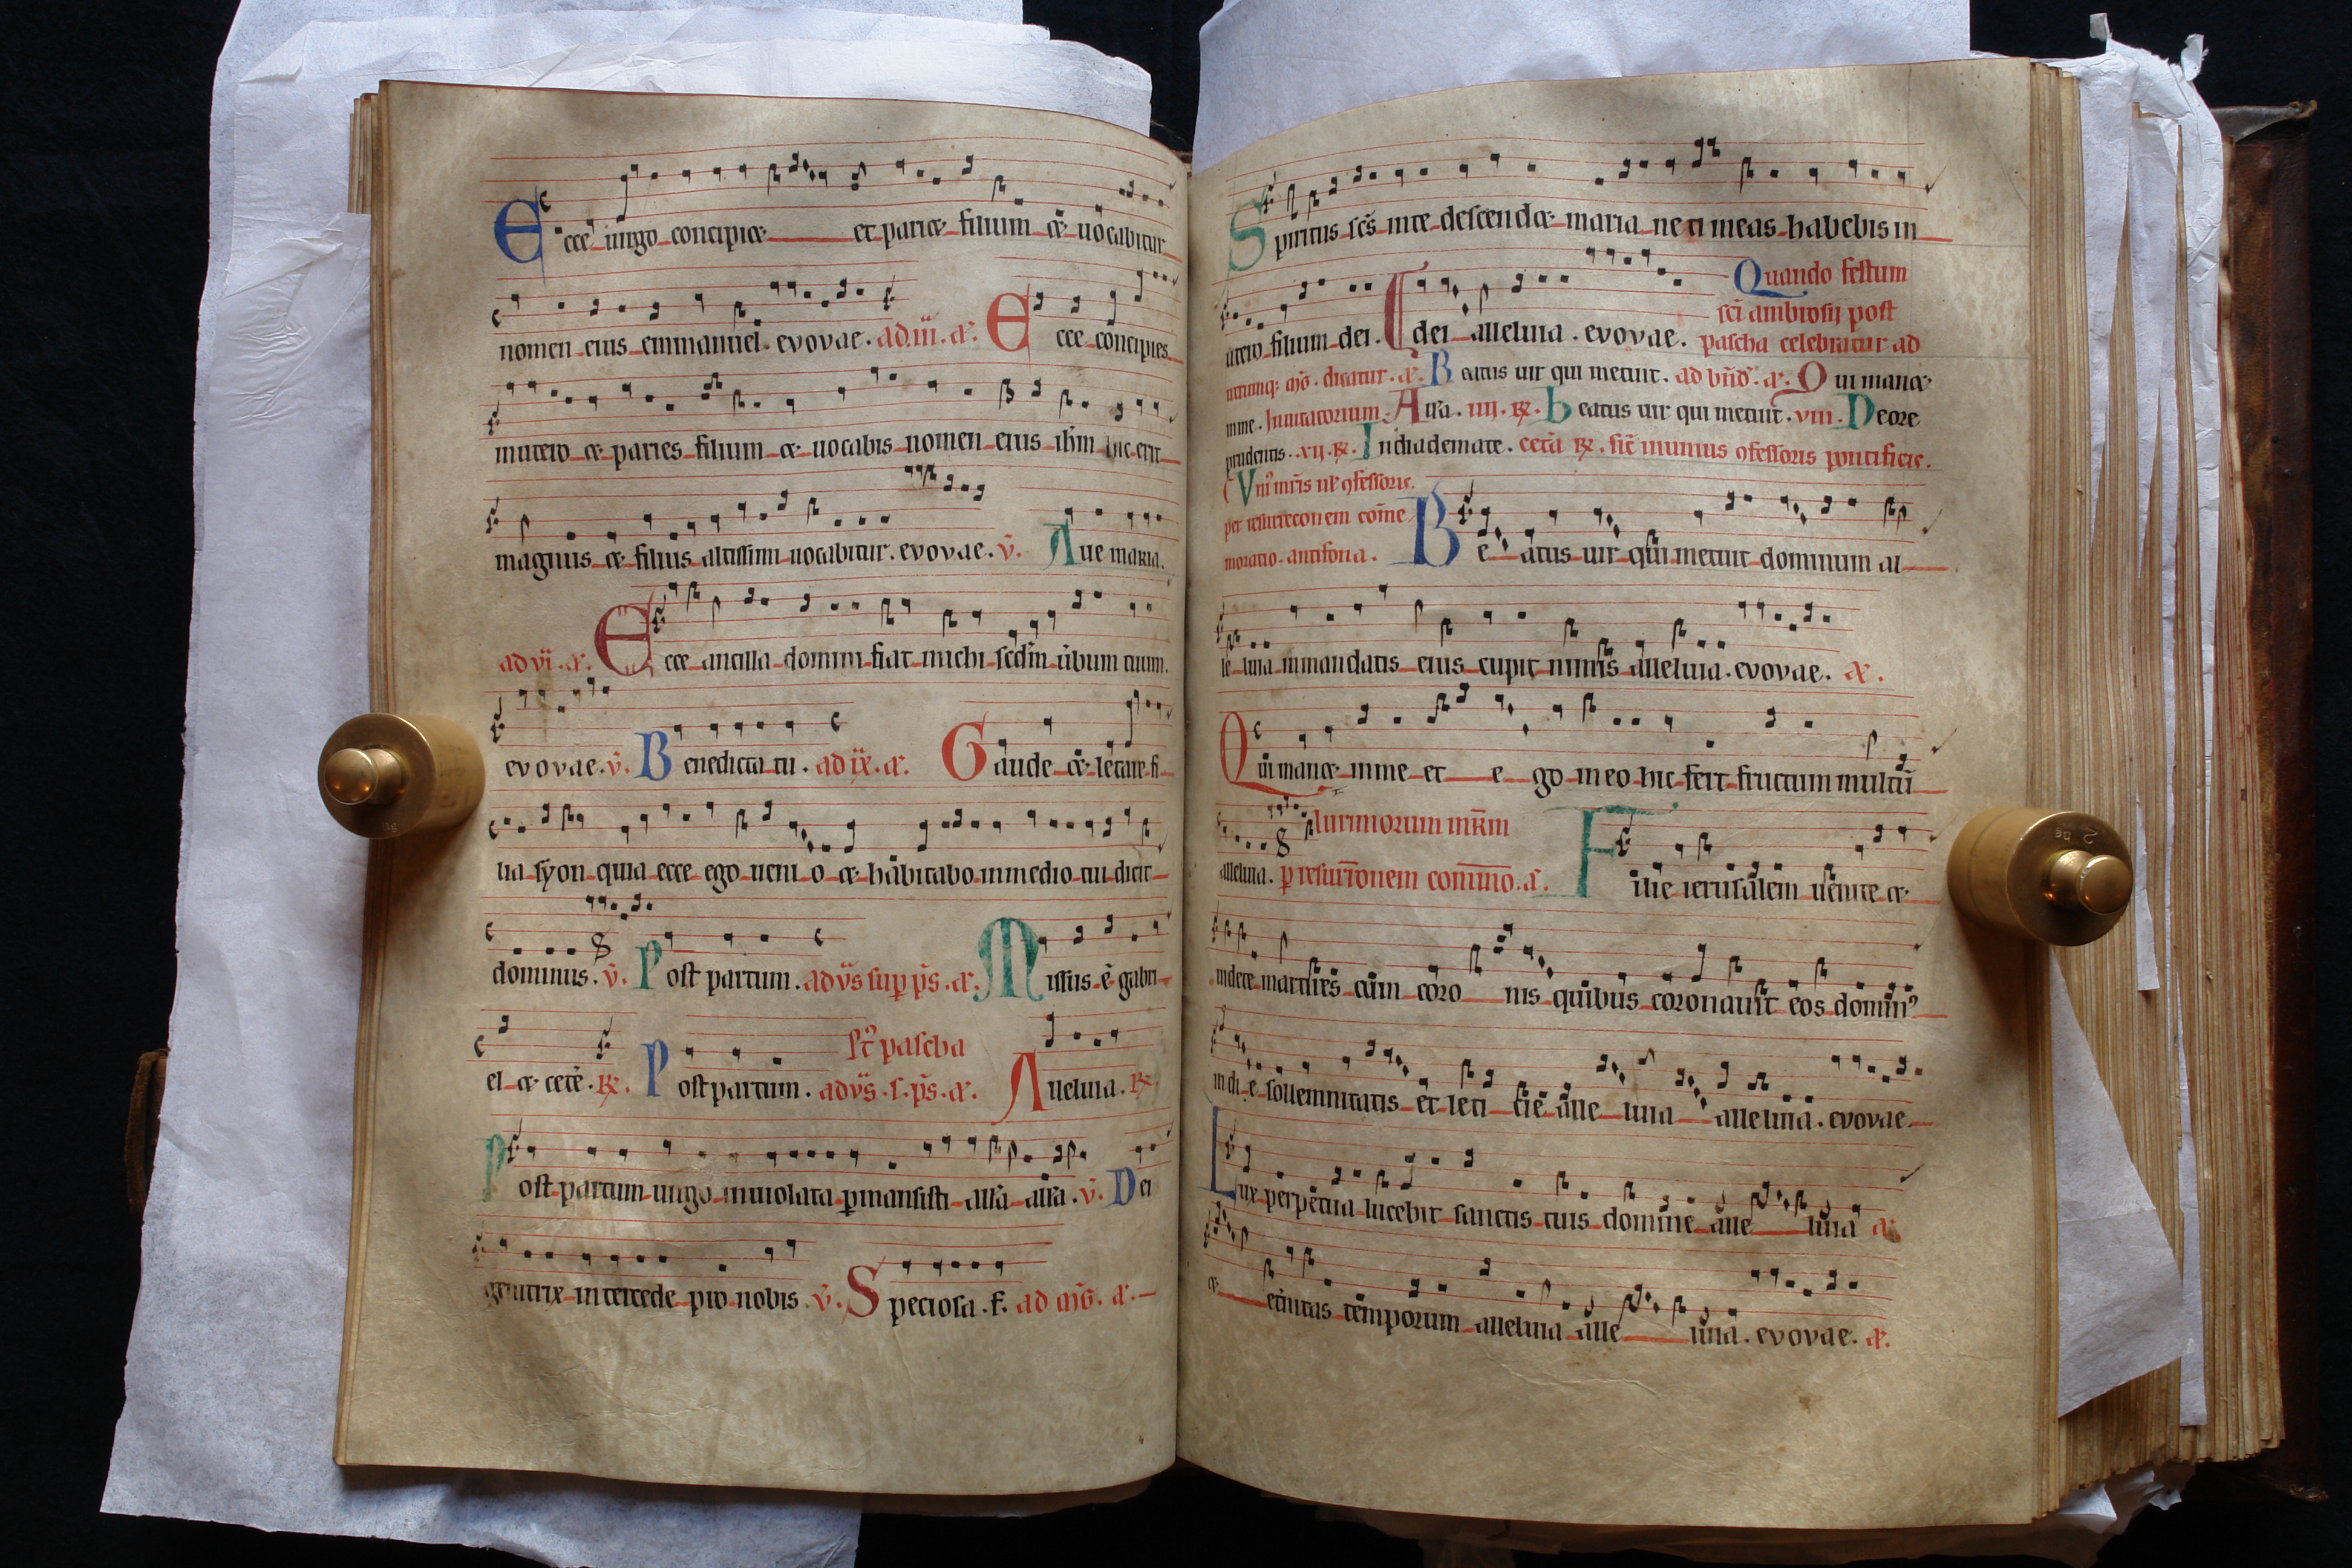 Ecce uirgo concipiet et pariet filium et uocabitur
nomen eius emmanuel. evovae. ad .iii. a. Ecce concipies
inutero et paries filium et uocabis nomen eius ihm hic erit
magnus et filius altissimi uocabitur. evovae. v. Aue maria.
ad vi. a. Ecce ancilla domini fiat michi scdm ubum tuum.
evovae. v. Benedicta tu. ad ix. a. Gaude et letare fi
lia syon quia ecce ego ueni o et habitabo inmedio tui dicit
dominus. v. Post partum. ad vs sup ps. a. Missus e gabri
el et cete. R. Post partum. ad vs. s. ps. a. Alleluia. R.
St pascha
Post partum uirgo inuiolata pmansisti alla alla. v. Dei
genitrix intercede pro nobis. v. Speciosa. f. ad mg. a.
Spiritus scs inte descendet maria ne timeas habebis in
utero filium dei. dei alleluia. evovae. Quando festum
sci ambrosij post
pascha celebratur ad
utrumq; mg. dicatur. a. Beatus uir qui metuit. ad bnd. a. Qui manet
inme. Inuitatorium. Alla. iiij. R. beatus uir qui metuit. viii. Deore
prudentis. vij. R. Indiademate. cetera R. sic in unius confessoris pontificis.
Vni mris ul confessoris.
per resurreconem come
moratio antifona. Beatus uir qui metuit dominum al
le luia inmandatis eius cupit nimis alleluia. evovae. a.
Qui manet inme et ego ineo hic fert fructum multu
alleluia. Plurimorum mrm
p resurronem commo. a. Filie ierusalem uenite et
uidete martires cum coronis quibus coronauit eos domin
indie sollemnitatis et leticie alle luia alleluia. evovae
Lux perpetua lucebit sanctis tuis domine alle luia a.
et eternitas temporum alleluia alle luia. evovae. a.